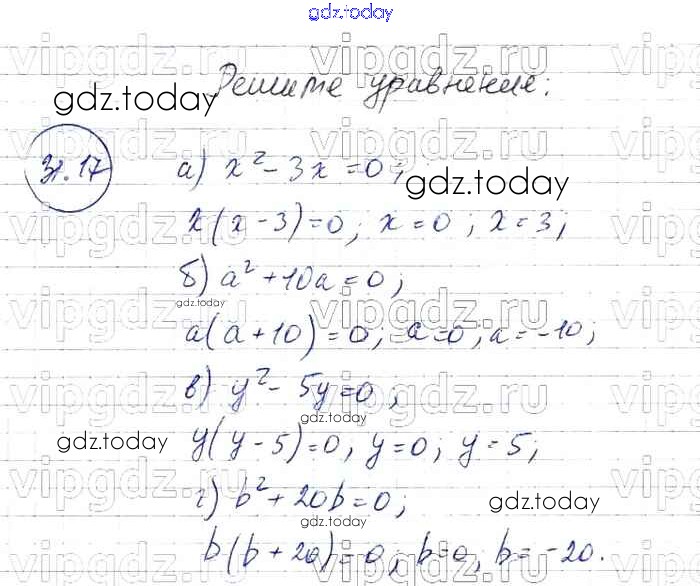 gdz.today
Решите уравнение:
gdz.today
31.17
а) x² - 3x = 0;
gdz.today
x(x - 3) = 0; x = 0; x = 3;
б) a² + 10a = 0;
gdz.today
a(a + 10) = 0; a = 0, a = -10;
в) y² - 5y = 0;
gdz.today
gdz.today
y(y - 5) = 0, y = 0; y = 5;
г) b² + 20b = 0;
gdz.today
gdz.today
b(b + 20) = 0, b = 0, b = -20.
vipgdz.ru
vipgdz.ru
vipgdz.ru
vipgdz.ru
vipgdz.ru
vipgdz.ru